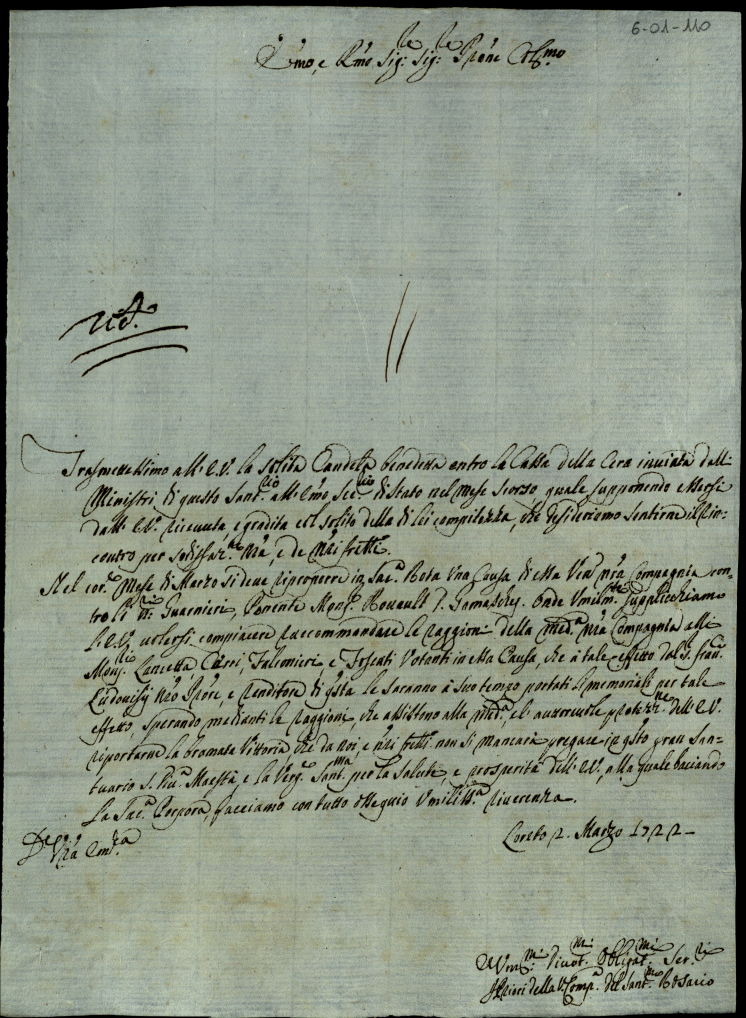 6-01-110
Emo, e Rmo Sig:re Sig:re Pron̄e Col͠mo
Trasmettessimo all' E.V. la solita Candela benedetta entro la Cassa della Cera inviata dalli
Ministri di questo Sant:rio all' Emo Seg:rio di Stato nel Mese scorso, quale supponendo essersi
dall' E.V. ricevuta, e gradita col solito della di lei compitezza, che desideriamo sentirne il rin-
contro per sodisfaz:ne Nr̄a, e de Nr̄i frēlli.
Nel cor:te Mese di Marzo si deve riproporre in Sac:a Rota Una Causa di essa Ven: nr̄a Compagnia con-
tro li SS:ri Guarnieri, Ponente Mons:r Rouault D. Gamaches. Onde Umilm:te supplichiamo
L'E.V. volersi compiacere raccomandare le raggioni della med:a nr̄a Compagnia alli
Mons:ri Lancetta, Cerri, Falconieri e Foscati Votanti in essa Causa, che à tale effetto dal S. Fran:co
Ludovisij Nr̄o Pron̄e, e renditore di q̄sta le saranno à suo tempo portati li memoriali per tale
effetto, sperando medianti le raggioni che assistono alla med:a e l' auttorevole protezz:ne dell' E.V.
riportarne la bramata Vittoria che da noi, e nr̄i frēlli non si mancarà pregare in q̄sto gran San-
tuario S. Div:a Maestà, e la Verg:e Sant:ma per la salute, e prosperità dell' E.V., alla quale baciando
la Sac:a Porpora, facciamo con tutto ossequio Umiliss:a riverenza.
Dell' Vr̄a Em:za
Loreto 2. Marzo 1722
Umi:mi Divot:mi Obligat:mi Ser:ri
I Priori della V: Comp:a del Sant:mo Rosario